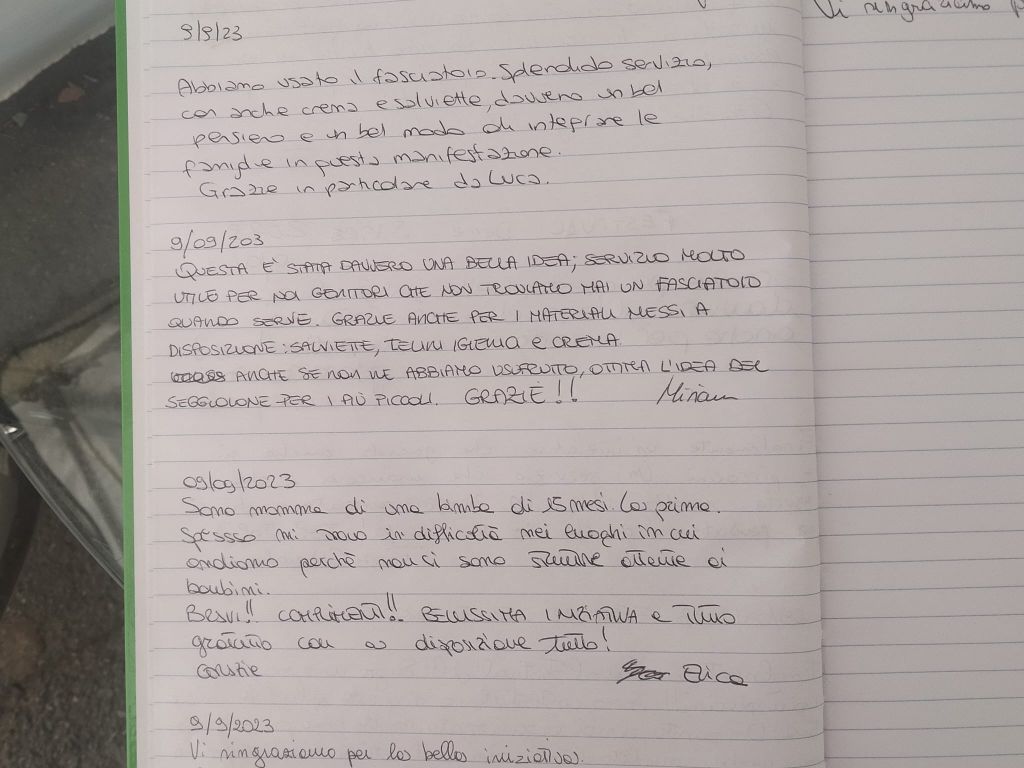 Vi ringraziamo p
9/9/23
Abbiamo usato il fasciatoio. Splendido servizio,
con anche crema e salviette, davvero un bel
pensiero e un bel modo di integrare le
famiglie in questa manifestazione.
Grazie in particolare da Luca.
9/09/203
QUESTA E' STATA DAVVERO UNA BELLA IDEA; SERVIZIO MOLTO
UTILE PER NOI GENITORI CHE NON TROVIAMO MAI UN FASCIATOIO
QUANDO SERVE. GRAZIE ANCHE PER I MATERIALI MESSI A
DISPOSIZIONE: SALVIETTE, TELINI IGIENICI E CREMA
ANCHE SE NON NE ABBIAMO USUFRUITO, OTTIMA L'IDEA DEL
SEGGIOLONE PER I PIÙ PICCOLI. GRAZIE!! Miriam
09/09/2023
Sono mamma di una bimba di 15 mesi. La prima.
Spesso mi trovo in difficoltà nei luoghi in cui
andiamo perchè non ci sono strutture attente ai
bambini.
BRAVI!! COMPLIMENTI!! BELLISSIMA INIZIATIVA e TUTTO
gratuito con a disposizione tutto!
Grazie Elica
9/9/2023
Vi ringraziamo per la bella iniziativa.